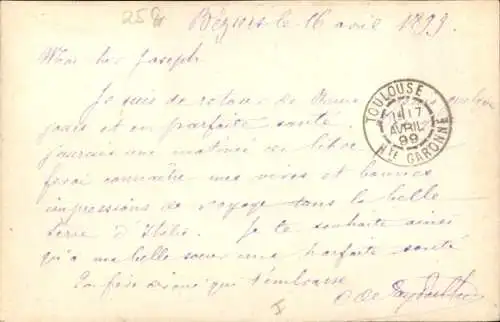 25 fr
Béziers le 16 avril 1899
Mon cher Joseph
Je suis de retour de Rome
jours et en parfaite santé.
J'aurais une matinée de libre
ferai connaître mes vives et bonnes
impressions de voyage dans la belle
terre d'Italie. Je te souhaite ainsi
qu'à ma belle soeur une parfaite santé
Ton frère dévoué qui t'embrasse
de
TOULOUSE
17
AVRIL
99
HTE GARONNE